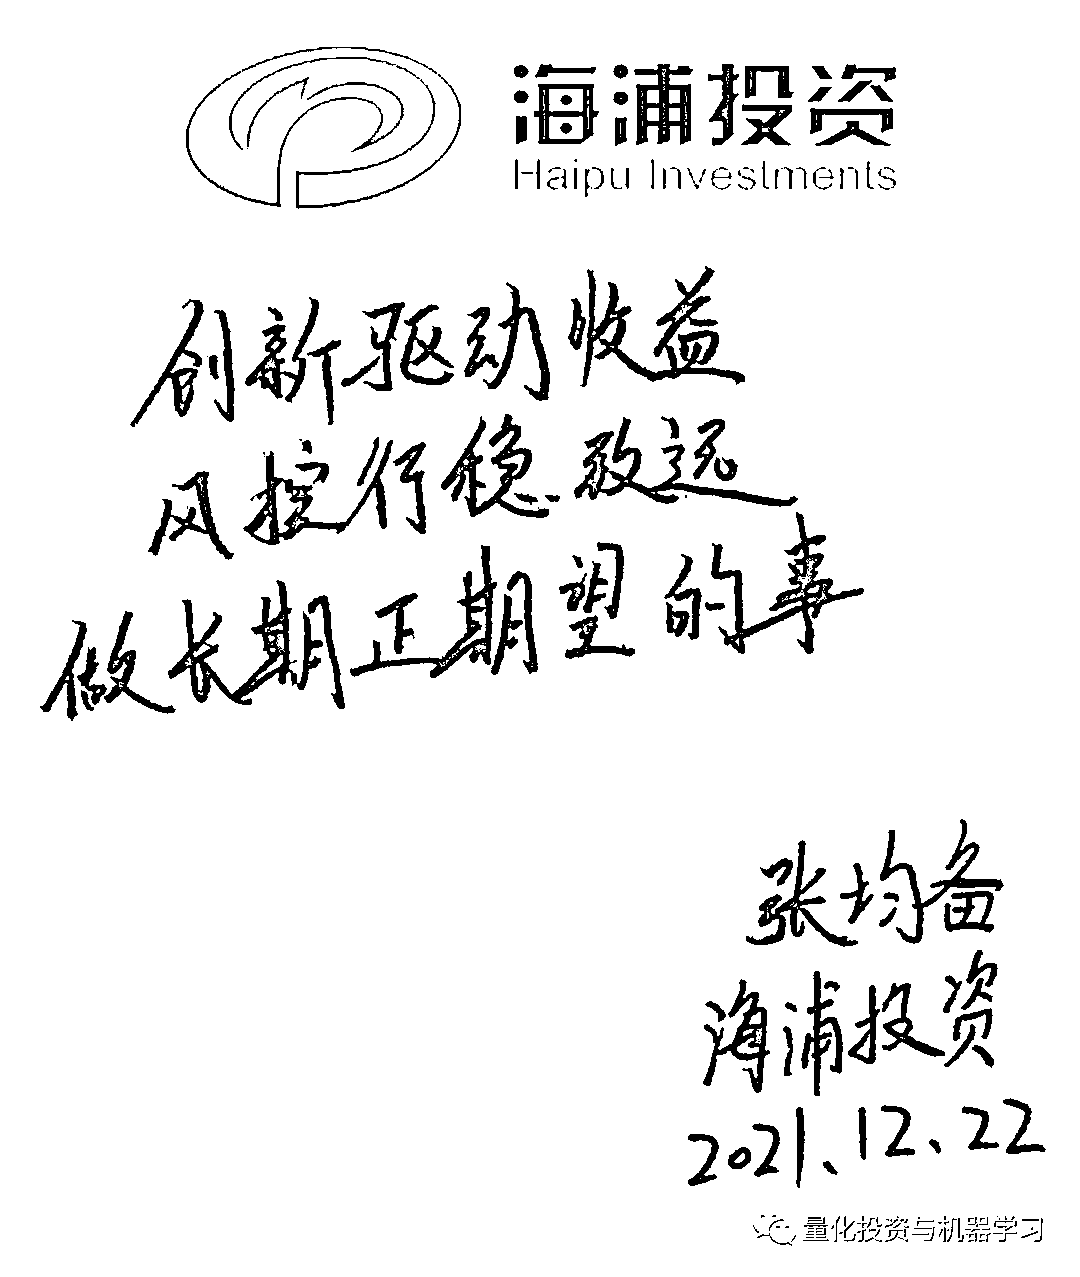 海浦投资
Haipu Investments
创新驱动收益
风控行稳致远
做长期正期望的事
张均备
海浦投资
2021.12.22
量化投资与机器学习